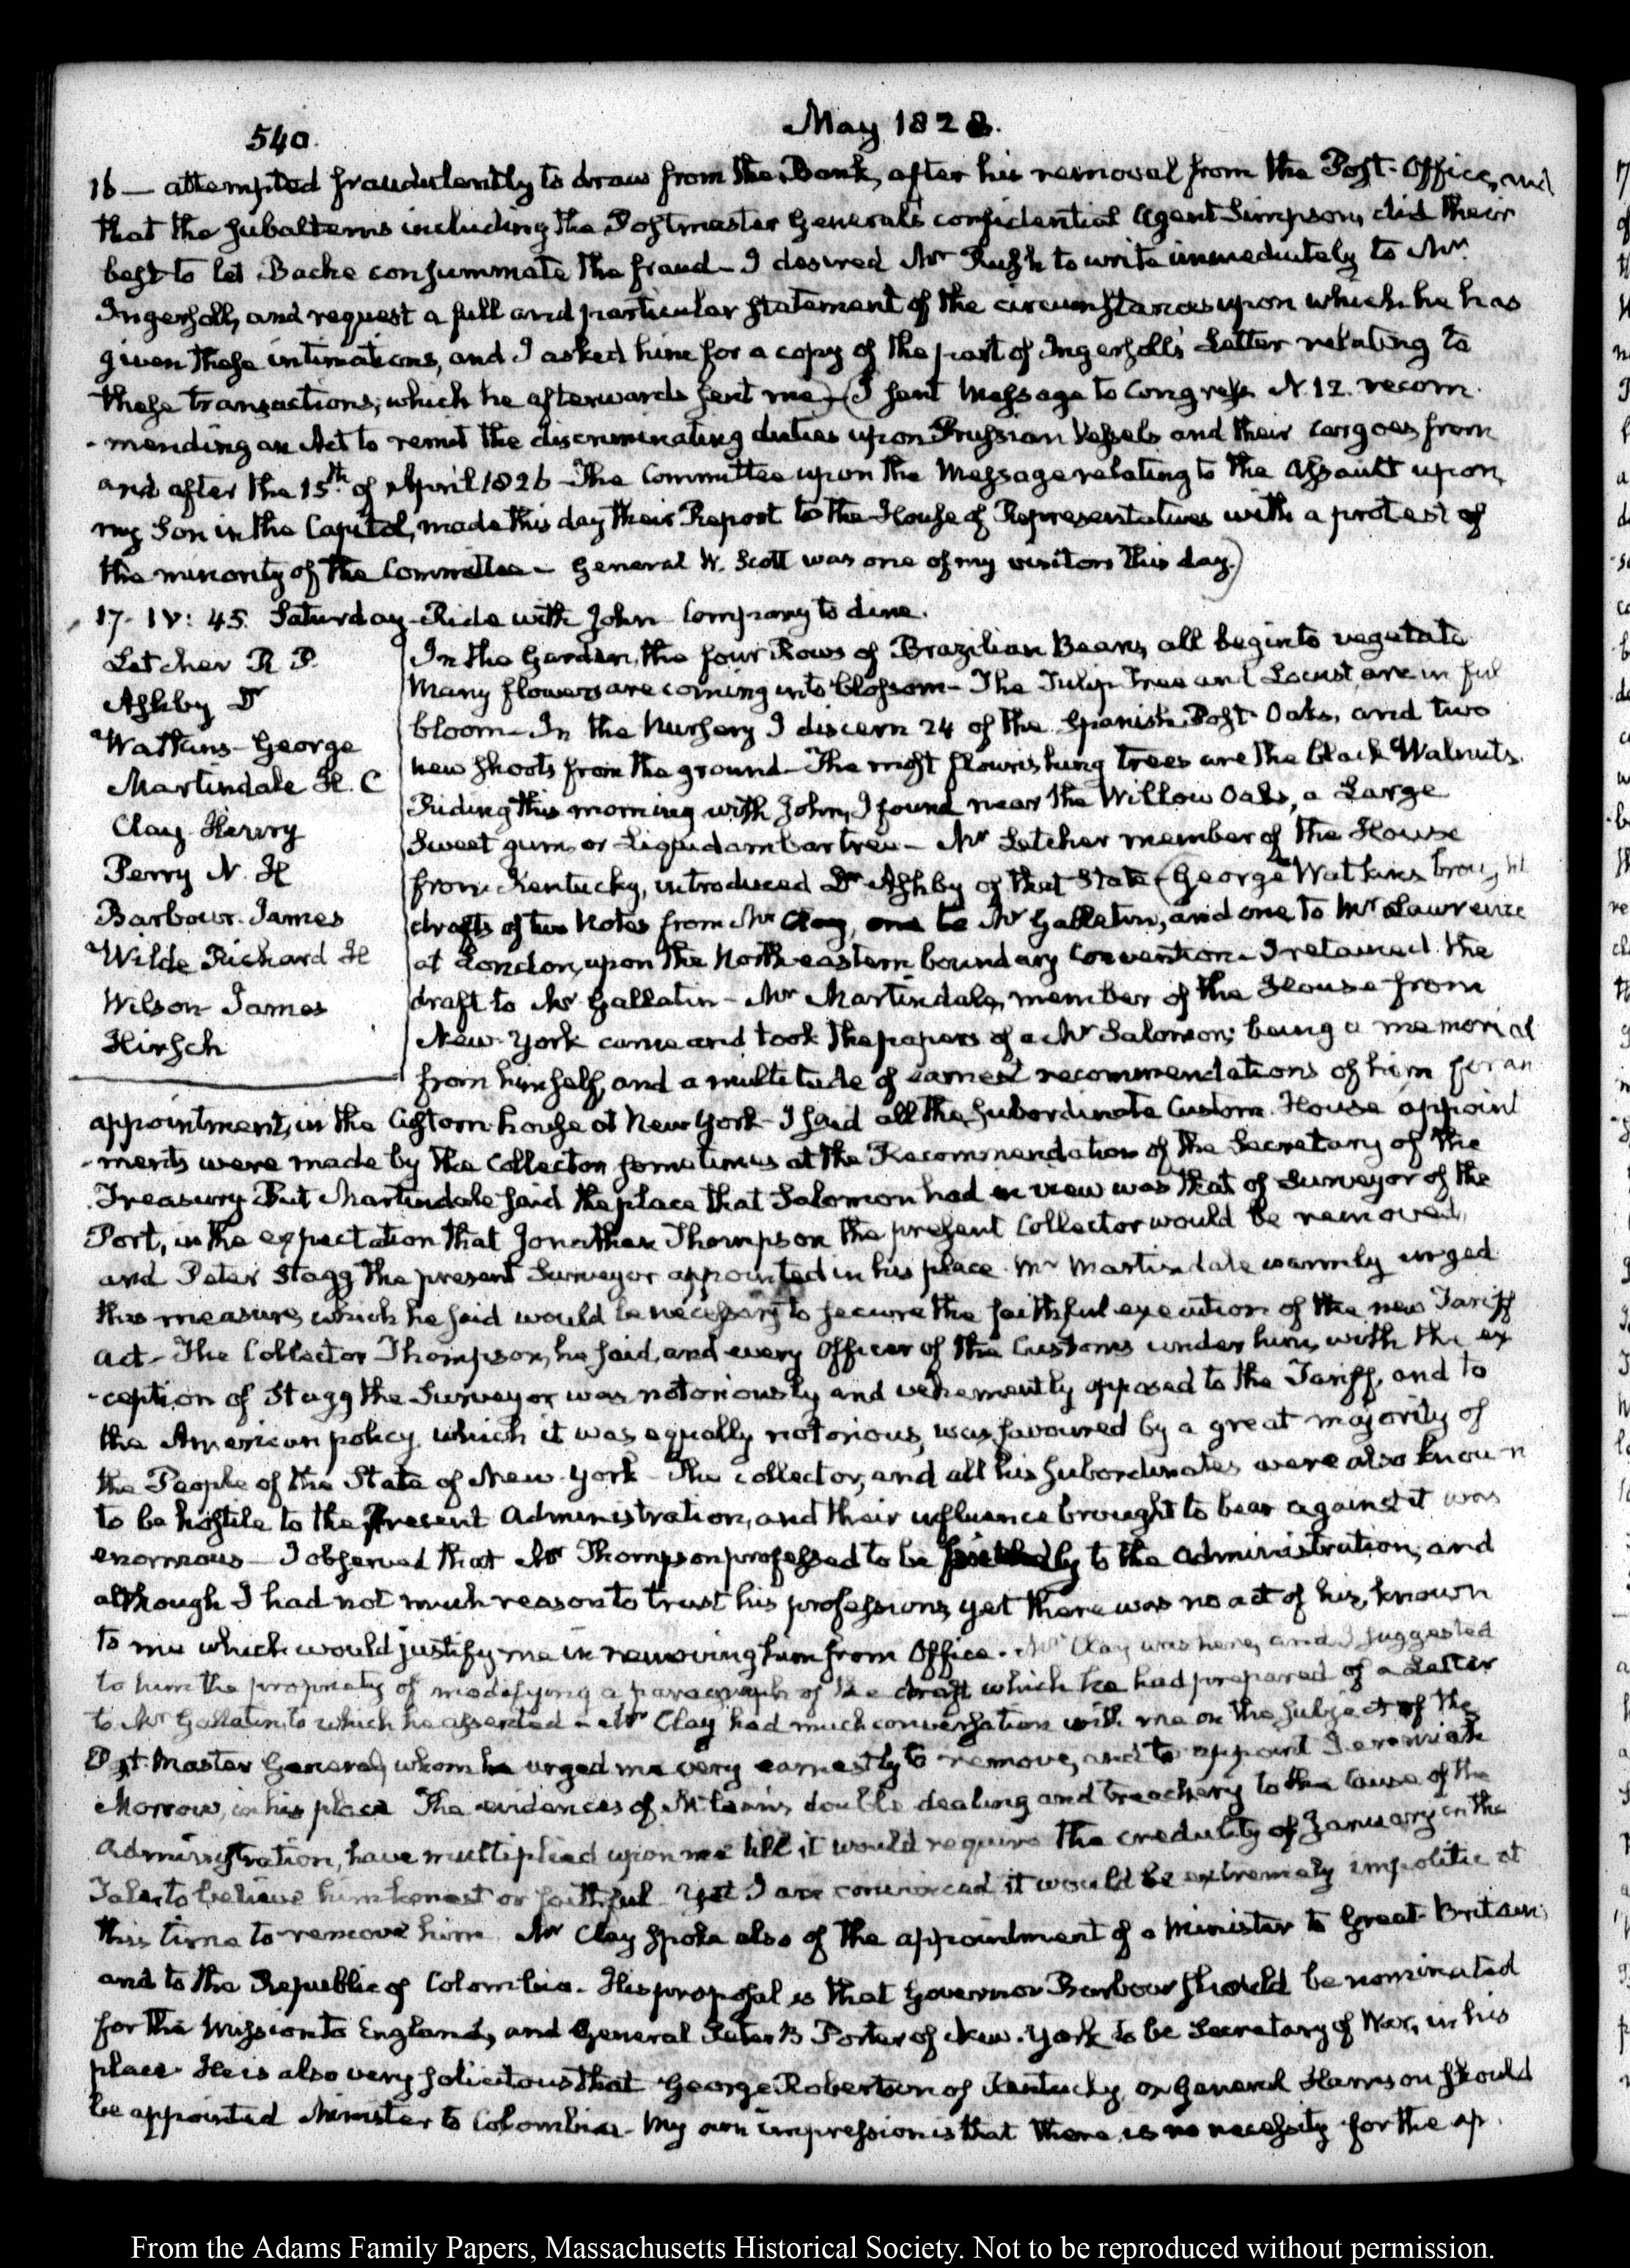 540.
May 1828.
16 — attempted fraudulently to draw from the Bank, after his removal from the Post-Office, and
that the subalterns including the Postmaster General's confidential Agent Simpson, did their
best to let Bache consummate the fraud – I desired Mr Rush to write immediately to Mr
Ingersoll, and request a full and particular statement of the circumstances upon which he has
given these intimations, and I asked him for a copy of the part of Ingersoll's Letter relating to
these transactions; which he afterwards sent me – (I sent Message to Congress N. 12. recom
-mending an Act to remit the discriminating duties upon Prussian Vessels and their Cargoes from
and after the 15th of April 1826 – The Committee upon the Message relating to the assault upon
my Son in the Capitol, made this day their Report to the House of Representatives with a protest of
the minority of the Committee – General W. Scott was one of my visitors this day.)
17. IV: 45. Saturday – Ride with John – Company to dine.
Letcher R P.
Ashby Dr
Watkins – George
Martindale H. C
Clay. Henry
Perry N. H
Barbour. James
Wilde Richard H
Wilson James
Hirsch
In the Garden, the four Rows of Brazilian Beans, all begin to vegetate
Many flowers are coming into blossom – The Tulip Tree and Locust, are in full
bloom – In the Nursery I discern 24 of the Spanish Post-Oaks, and two
new shoots from the ground – The most flourishing trees are the black Walnuts.
Riding this morning with John, I found near the Willow Oaks, a Large
Sweet gum, or Liquidambar tree – Mr Letcher member of the House
from Kentucky, introduced Dr Ashby of that State (George Watkins brought
drafts of two Notes from Mr Clay, one to Mr Gallatin, and one to Mr Lawrence
at London, upon the North eastern boundary Convention – I retained the
draft to Mr Gallatin – Mr Martindale, member of the House from
New-York came and took the papers of a Mr Salomon; being a memorial
from himself, and a multitude of earnest recommendations of him for an
appointment, in the Custom-house at New York – I said all the subordinate Custom House appoint
-ments were made by the Collector, sometimes at the Recommendation of the Secretary of the
Treasury. But Martindale said the place that Salomon had in view was that of Surveyor of the
Port, in the expectation that Jonathan Thompson the present Collector would be removed,
and Peter Stagg the present Surveyor appointed in his place. Mr Martindale warmly urged
this measure, which he said would be necessary to secure the faithful execution of the new Tariff
Act – The Collector Thompson, he said, and every Officer of the Customs under him, with the ex
-ception of Stagg the Surveyor was notoriously and vehemently opposed to the Tariff, and to
the American policy, which it was equally notorious, was favoured by a great majority of
the People of the State of New-York – The collector, and all his subordinates were also known
to be hostile to the Present Administration, and their influence brought to bear against it was
enormous – I observed that Mr Thompson professed to be friendly to the Administration, and
although I had not much reason to trust his professions, yet there was no act of his, known
to me which would justify me in removing him from Office. Mr Clay was here, and I suggested
to him the propriety of modifying a paragraph of the draft which he had prepared of a Letter
to Mr Gallatin, to which he assented – Mr Clay had much conversation with me on the subject of the
Post-Master General, whom he urged me very earnestly to remove, and to appoint Jeremiah
Morrow, in his place. The evidences of McLean's double dealing and treachery to the cause of the
Administration, have multiplied upon me till it would require the credulity of January in the
Tale, to believe him honest or faithful – Yet I am convinced it would be extremely impolitic at
this time to remove him. Mr Clay spoke also of the appointment of a Minister to Great-Britain,
and to the Republic of Colombia. His proposal is that Governor Barbour should be nominated
for the Mission to England, and General Peter B Porter of New-York to be Secretary of War, in his
place. He is also very solicitous that George Robertson of Kentucky, or General Harrison should
be appointed Minister to Colombia. My own impression is that there is no necessity for the ap.
From the Adams Family Papers, Massachusetts Historical Society. Not to be reproduced without permission.